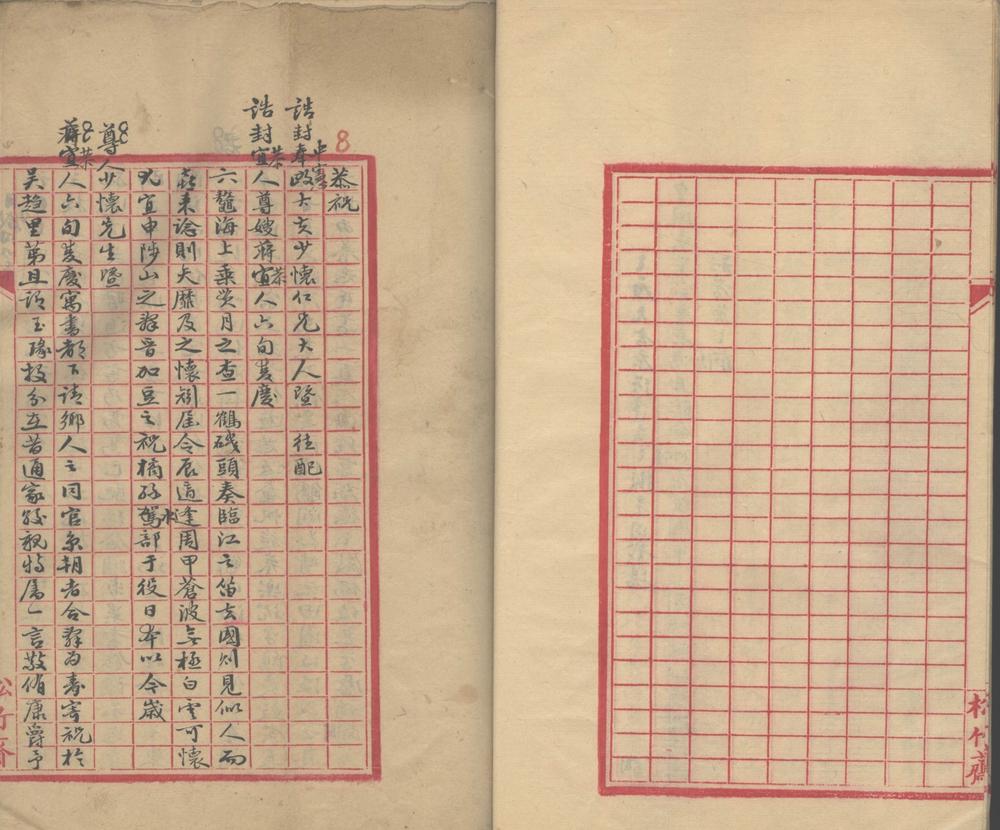 恭祝
誥封中憲奉政大夫少懷仁兄大人暨德配
誥封恭宜人尊嫂蔣恭宜人六旬雙慶
六鼇海上乘漢月之查一鶴磯頭奏臨江之笛去國則見似人而
喜來諗則天靡及之懷矧屆令辰適逢周甲蒼波無極白雲可懷
九宜申陟山之釋晉加豆之祝橘孫水駕部于役日本以今歲
尊人少懷先生暨
蔣恭宜人六旬雙慶寓書都下請鄉人之同官京朝者合釋為壽寄祝於
吳趨里第且謂玉瑑投分互昔通家致親特屬一言敬侑康爵予
松竹齋